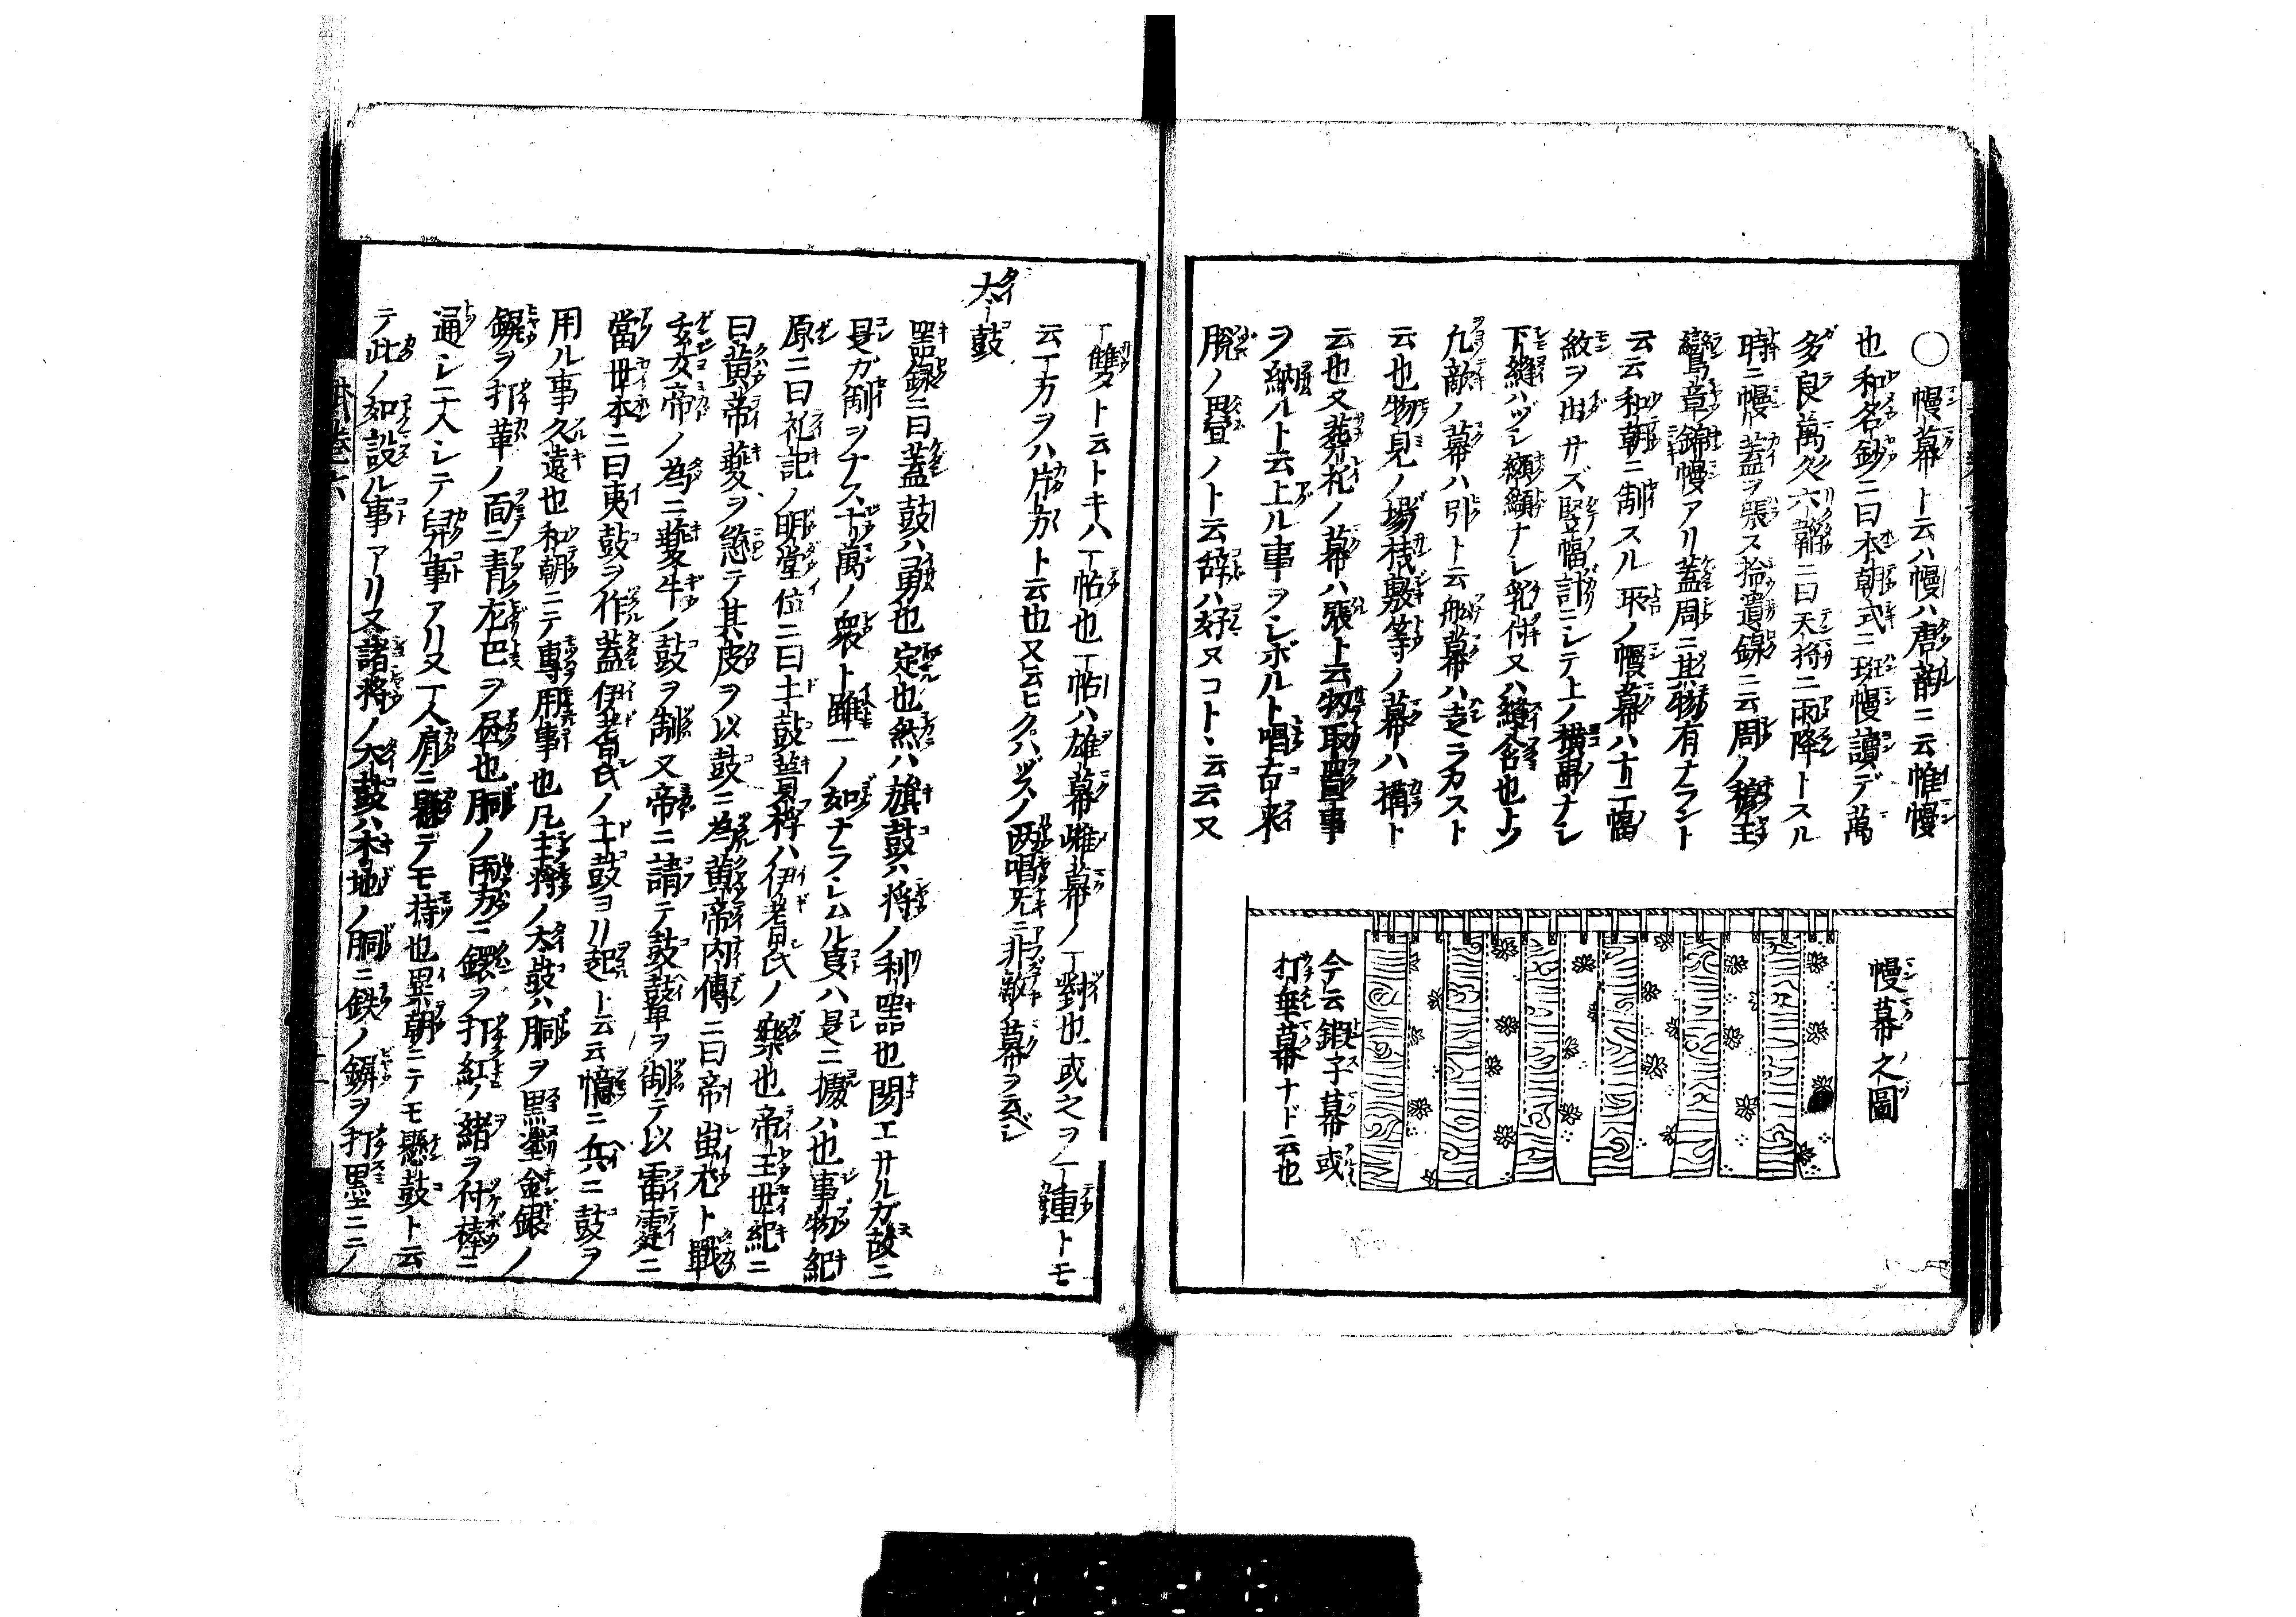 〇幔幕ト云ハ幔ハ唐韵ニ云帷幔
也和名鈔ニ曰本朝式ニ斑幔讀デ萬
多良萬久六韜ニ曰天將ニ雨降トスル
時ニ幔蓋ヲ張ス拾遺錄ニ云周ノ穆王
鸞章錦幔アリ蓋周ニ其物有ナラント
云云和朝ニ制スル所ノ幔幕ハ十二幅
紋ヲ出サズ竪幅計ニシテ上ノ横畀ナシ
下縫ハヅシ纐纈ナシ乳併又ハ縫含也トソ
凡敵ノ幕ハ引ト云舩幕ハ走ラカスト
云也物見ノ場桟敷等ノ幕ハ搆ト
云也又葬礼ノ幕ハ張ト云物取置事
ヲ納ルト云上ル事ヲシボルト唱古来
用ノ畳ノト云辞ハ好ヌコト、云云又
幔幕之圖
今云緞子幕或
打華幕ナド云也
丁雙ト云トキハ丁帖也丁帖ハ雄幕雌幕ノ丁對也或之ヲ丁重トモ
云丁方ヲハ片方ト云也又云ヒクハヅスノ两唱死ニ非敵ノ幕ヲ云ベシ
大鼓
器録ニ曰蓋鼓ハ勇也定也然ハ旗鼓ハ将ノ利器也閟エサルガ故ニ
是ガ制ヲナス十萬ノ衆ト雖一ノ如ナラシムル㕝ハ是ニ據ハ也事物紀
原ニ曰礼記ノ明堂位ニ曰土鼓蕢桴ハ伊耆氏ノ樂也帝王世紀ニ
曰黄帝夔ヲ慾テ其皮ヲ以鼓ニ為黄帝内傳ニ曰帝蚩尤ト戰
玄女帝ノ為ニ夔牛ノ鼓ヲ制又帝ニ請テ鼓鼙ヲ制テ以雷霆ニ
當世本ニ曰夷鼓ヲ作蓋伊耆氏ノ土鼓ヨリ起ト云云憶ニ兵ニ鼓ヲ
用ル事久遠也和朝ニテ專用事也凡主將ノ大鼓ハ胴ヲ黒塗金銀ノ
鋲ヲ打革ノ面ニ青龙巴ヲ昼也胴ノ兩方ニ鐶ヲ打紅ノ緒ヲ付棒ニ
通シ二人シテ舁事アリ又丁人肩ニ懸デモ持也異朝ニテモ懸鼓ト云
テ此ノ如設ル事アリ又諸将ノ大鼓ハ木地ノ胴ニ鉄ノ鋲ヲ打墨ニ二ノ